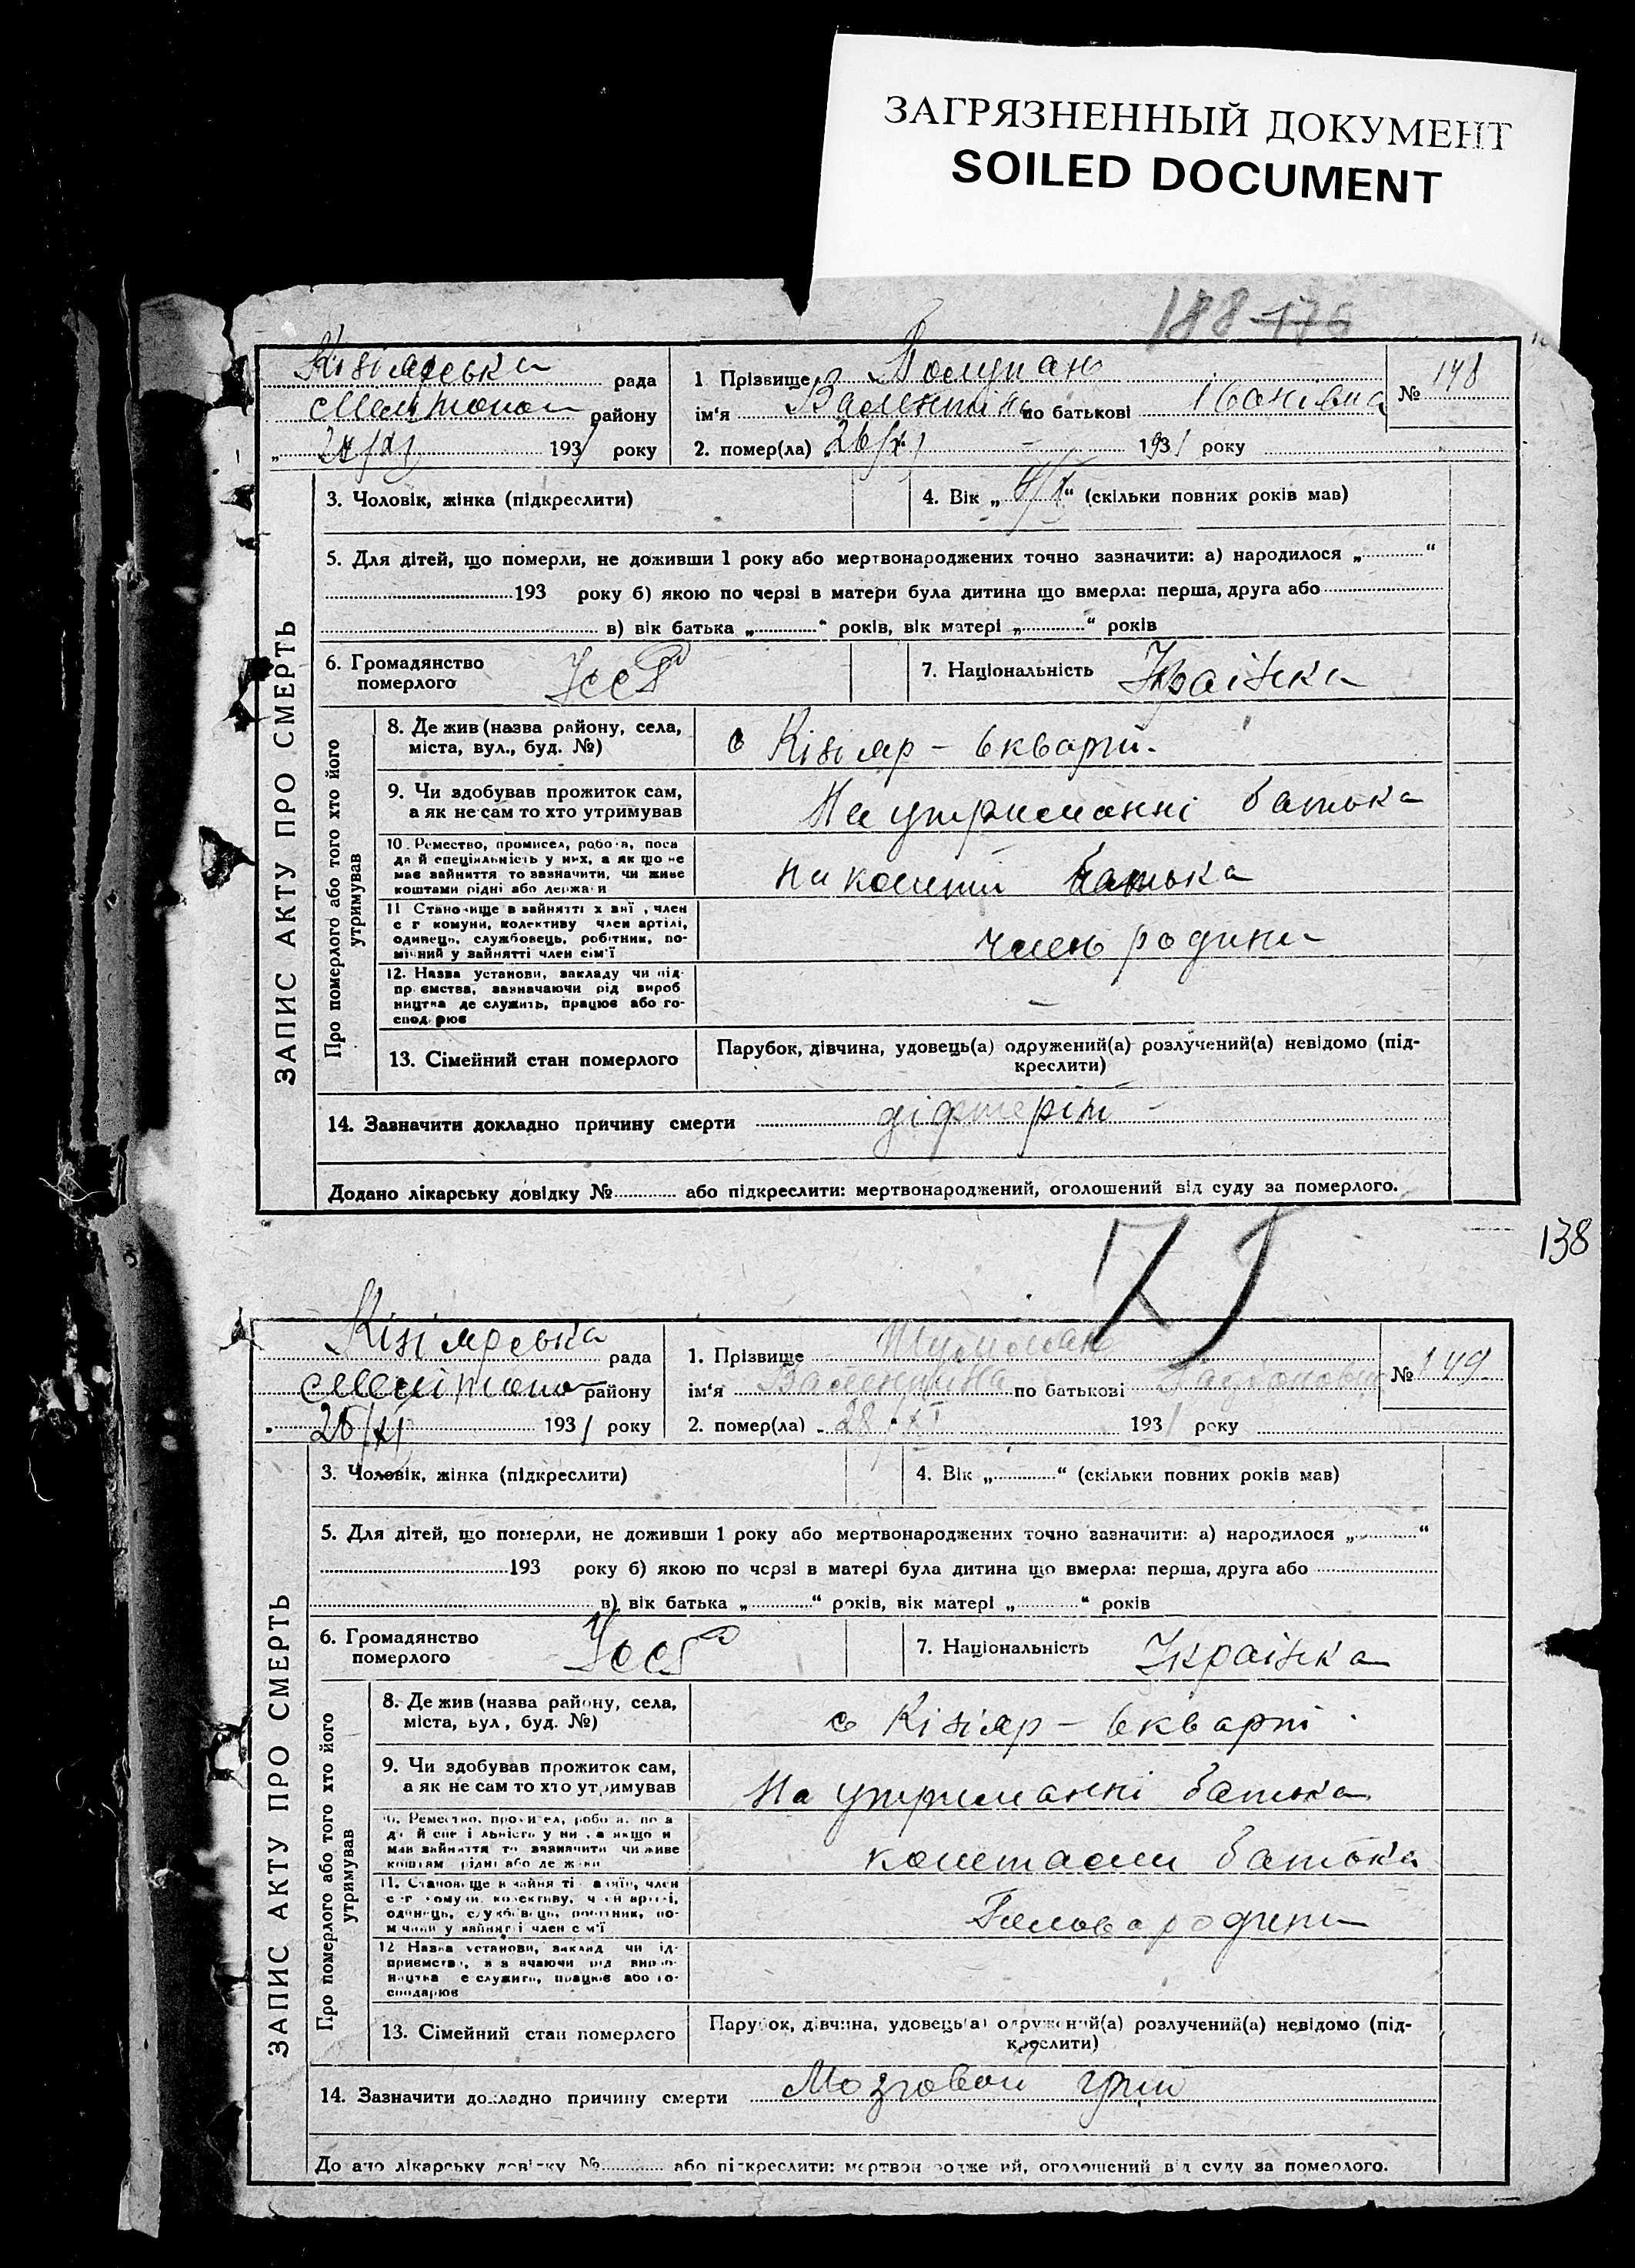 ЗАГРЯЗНЕННЫЙ ДОКУМЕНТ
SOILED DOCUMENT
188 176
Кізіярська рада
Мелітопол району
1931 року
1 Прізвище
ім'я Валентіна по батькові Іванівна
2. помер(ла) 26/XI 1931 року
№ 148
ЗАПИС АКТУ ПРО СМЕРТЬ
3. Чоловік, жінка (підкреслити)
4. Вік „ “ (скільки повних років мав)
5. Для дітей, що померли, не доживши 1 року або мертвонароджених точно зазначити: а) народилося „ “
193 року б) якою по черзі в матери була дитина що вмерла: перша, друга або
в) вік батька „ “ років, вік матері „ “ років
6. Громадянство
померлого
УССР
7. Національність Українка
Про померлого або того хто його
утримував
8. Де жив (назва району, села,
міста, вул., буд. №)
с Кізіяр – 6 кварт.
9. Чи здобував прожиток сам,
а як не сам то хто утримував
На утриманні батька
10. Ремество, промисел, робота, поса
да й спеціяльність у них, а як що не
має зайняття то зазначити, чи живе
коштами рідні або держави
На кошти батька
11 Становище в зайнятті х зяї , член
с г комуни, колективу член артілі,
одинець, службовець, робітник, по-
мічний у зайнятті член сім'ї
член родини
12. Назва установи, закладу чи під-
приємства, зазначаючи рід вироб
ництва де служить, працює або го-
сподарює
–
13. Сімейний стан померлого
Парубок, дівчина, удовець(а) одружений(а) розлучений(а) невідомо (під-
креслити)
14. Зазначити докладно причину смерти дифтеріт
Додано лікарську довідку № або підкреслити: мертвонароджений, оголошений від суду за померлого.
138
Кізіярська рада
Мелітопол району
1931 року
1. Прізвище
ім'я Валентина по батькові
2. помер(ла) 28/XI 1931 року
№ 149
ЗАПИС АКТУ ПРО СМЕРТЬ
3. Чоловік, жінка (підкреслити)
4. Вік „ “ (скільки повних років мав)
5. Для дітей, що померли, не доживши 1 року або мертвонароджених точно зазначити: а) народилося „ “
193 року б) якою по черзі в матері була дитина що вмерла: перша, друга або
в) вік батька „ “ років, вік матері „ “ років
6. Громадянство
померлого
УССР
7. Національність Українка
Про померлого або того хто його
утримував
8. Де жив (назва району, села,
міста, вул, буд. №)
с Кізіяр – 6 кварт
9. Чи здобував прожиток сам,
а як не сам то хто утримував
На утриманні батька
коштами батька
Голова родини
13. Сімейний стан померлого
Парубок, дівчина, удовець(а) одружений(а) розлучений(а) невідомо (під-
креслити)
14. Зазначити докладно причину смерти Мозговой грип
Додано лікарську довідку № або підкреслити: мертвонароджений, оголошений від суду за померлого.